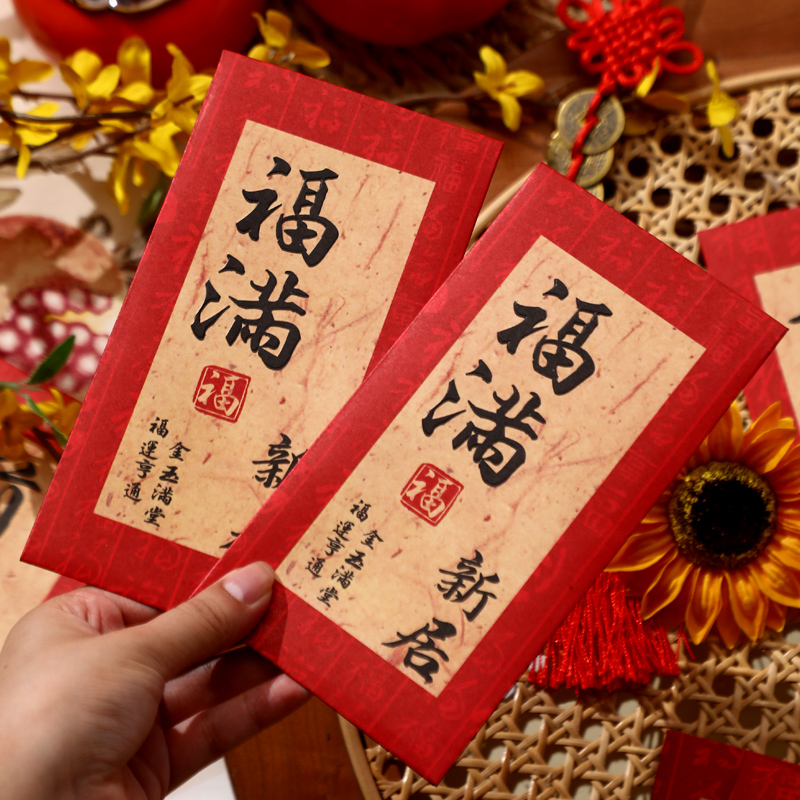 福满
福
新
金玉满堂
福運亨通
福满
福
新居
金玉满堂
福運亨通